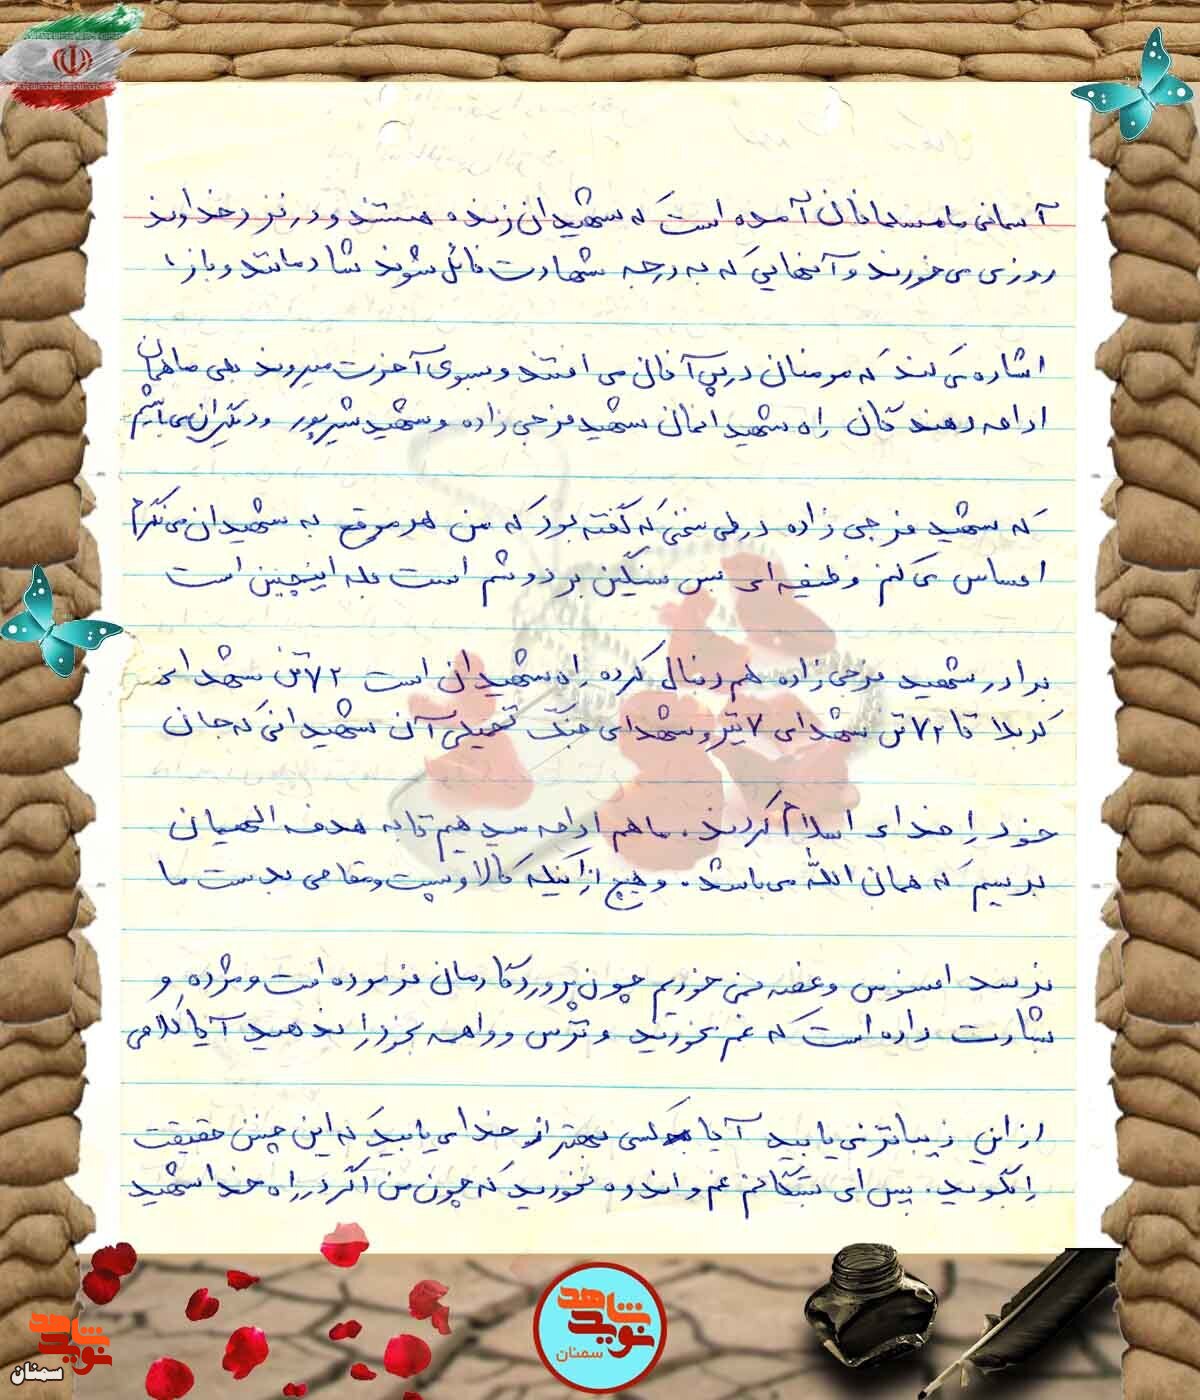 آسمانی ما مسلمانان آمده است که شهیدان زنده هستند و در نزد خداوند
روزی می خورند و آنهایی که به درجه شهادت نائل شوند شادمانند و باز
اشاره می کند که مومنان در پی آنان می افتند و بسوی آخرت میروند بلی ما همان
ادامه دهندگان راه شهیدانمان شهید فرجی زاده و شهید شیرپور و دیگران می باشیم
که شهید فرجی زاده در طی سخنی که گفته بود که من هر موقع به شهیدان می نگرم
احساس می کنم وظیفه ای بس سنگین بر دوشم است بله اینچنین است
برادر شهید فرجی زاده هم دنبال کرده راه شهیدان است ۷۲ تن شهدای
کربلا تا ۷۲ تن شهدای ۷ تیر و شهدای جنگ تحمیلی آن شهیدانی که جان
خود را فدای اسلام کردند. ما هم ادامه میدهیم تا به هدف الهیمان
برسیم که همان الله می باشد. و هیچ از اینکه کالا و پست و مقامی بدست ما
نرسد افسوس و غصه نمی خوریم چون پروردگارمان فرموده است و مژده و
بشارت داده است که غم نخورید و ترس و واهمه بخود راه ندهید آیا کلامی
از این زیباتر می یابید آیا کسی بهتر از خدا می یابید که این چنین حقیقت
را بگوید. پس ای بستگانم غم و اندوه نخورید که چون من اگر در راه خدا شهید
نوید شاهد
سمنان
نوید شاهد
سمنان